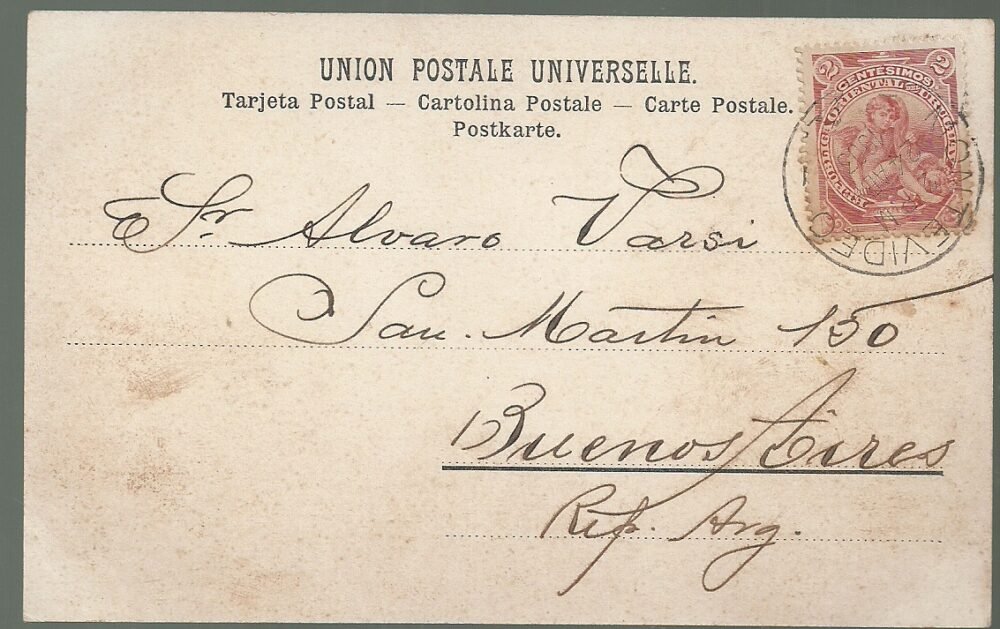 UNION POSTALE UNIVERSELLE.
Tarjeta Postal — Cartolina Postale — Carte Postale.
Postkarte.
2 CENTESIMOS 2
REPUBLICA ORIENTAL DEL URUGUAY
MONTEVIDEO
Sr. Alvaro Varsi
San. Martin 150
Buenos Aires
Rep. Arg.